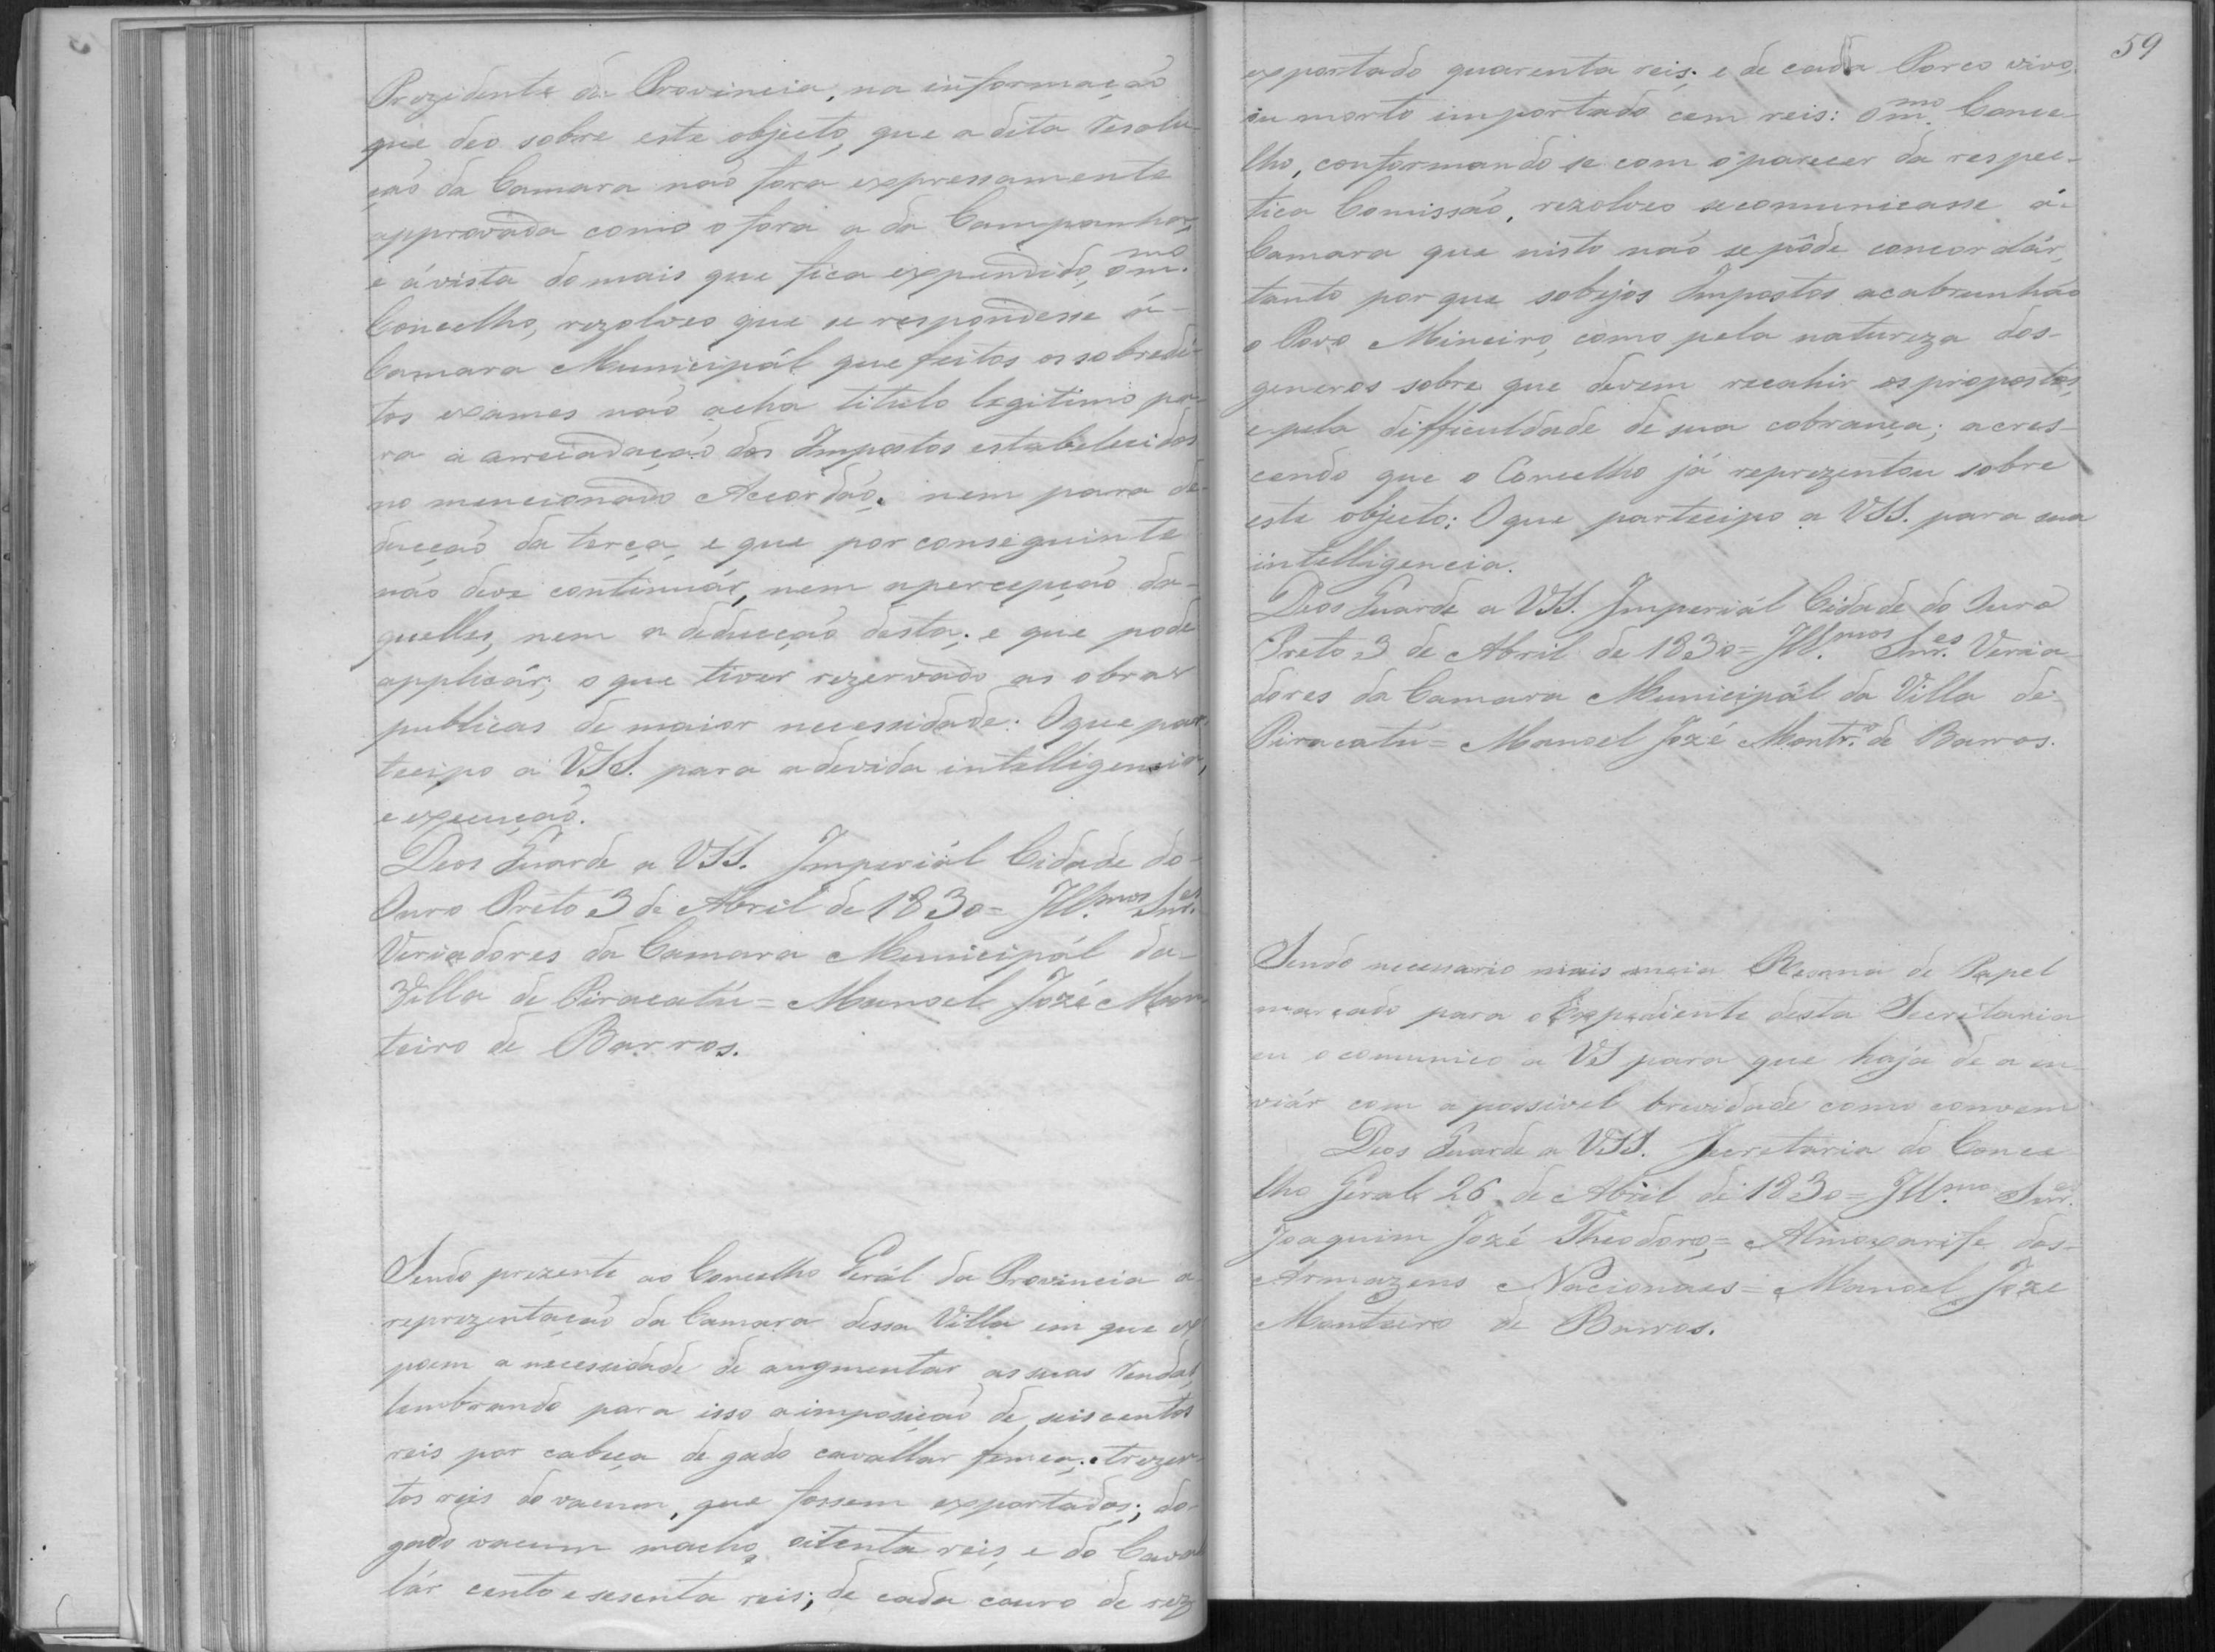 Prezidente da Provincia, na informação
que deo sobre este objecto, que a dita resolu-
ção da Camara não fora expressamente
approvada como o fora a da Campanha,
e á vista do mais que fica expendido, o m.mo
Concelho, rezolveo que se respondesse á-
Camara Municipál que feitos os sobredi-
tos exames não acha titulo legitimo pa-
ra a arrecadação dos Impostos estabelecidos
no mencionado Accordão, nem para de-
ducção da terça, e que por conseguinte
não deve continuár, nem a percepção da-
quelles, nem a deducção desta; e que pode
applicár, o que tiver rezervado as obras
publicas de maior necessidade. O que par-
tecipo a VSS. para a devida intelligencia,
e execução.
Deos Guarde a VSS. Imperiál Cidade do
Ouro Preto 3 de Abril de 1830= Ill.mos Snr.es
Veriadores da Camara Municipál da-
Villa de Piracatú= Manoel Jozé Mon-
teiro de Barros.
Sendo prezente ao Concelho Gerál da Provincia a
reprezentação da Camara dessa Villa em que ex
poem a necessidade de augmentar as suas rendas,
lembrando para isso a imposição de seis centos
reis por cabeça de gado cavallar femea; trezen-
tos reis do vacum, que fossem exportados; do-
gado vacum macho, oitenta reis, e do Caval
lár cento e sesenta reis; de cada couro de rez
59
exportado quarenta reis; e de cada Porco vivo,
ou morto importado cem reis: o m.mo Conce-
lho, conformando se com o parecer da respec-
tiva Comissão, rezolveo se comunicasse á-
Camara que nisto não se póde concordár,
tanto por que sobejos Impostos acabrunhão
o Povo Mineiro, como pela natureza dos-
generos sobre que devem recahir os propostos,
e pela difficuldade de sua cobrança; acres-
cendo que o Concelho já reprezentou sobre
este objecto: O que partecipo a VSS. para sua
intelligencia.
Deos Guarde a VSS. Imperiál Cidade do Ouro
Preto 3 de Abril de 1830= Ill.mos Snr.es Veria-
dores da Camara Municipál da Villa de-
Piracatú= Manoel Jozé Montr.o de Barros.
Sendo necessario mais meia Resma de Papel
marcado para o Expediente desta Secretaria
eu o comunico a VS para que haja de a en-
viár com a possivel brevidade como convem
Deos Guarde a VSS. Secretaria do Conce-
lho Geral 26 de Abril de 1830= Ill.mo Snr.
Joaquim Jozé Theodoro,= Almoxarife dos-
Armazens Nacionaes= Manoel Joze
Monteiro de Barros.